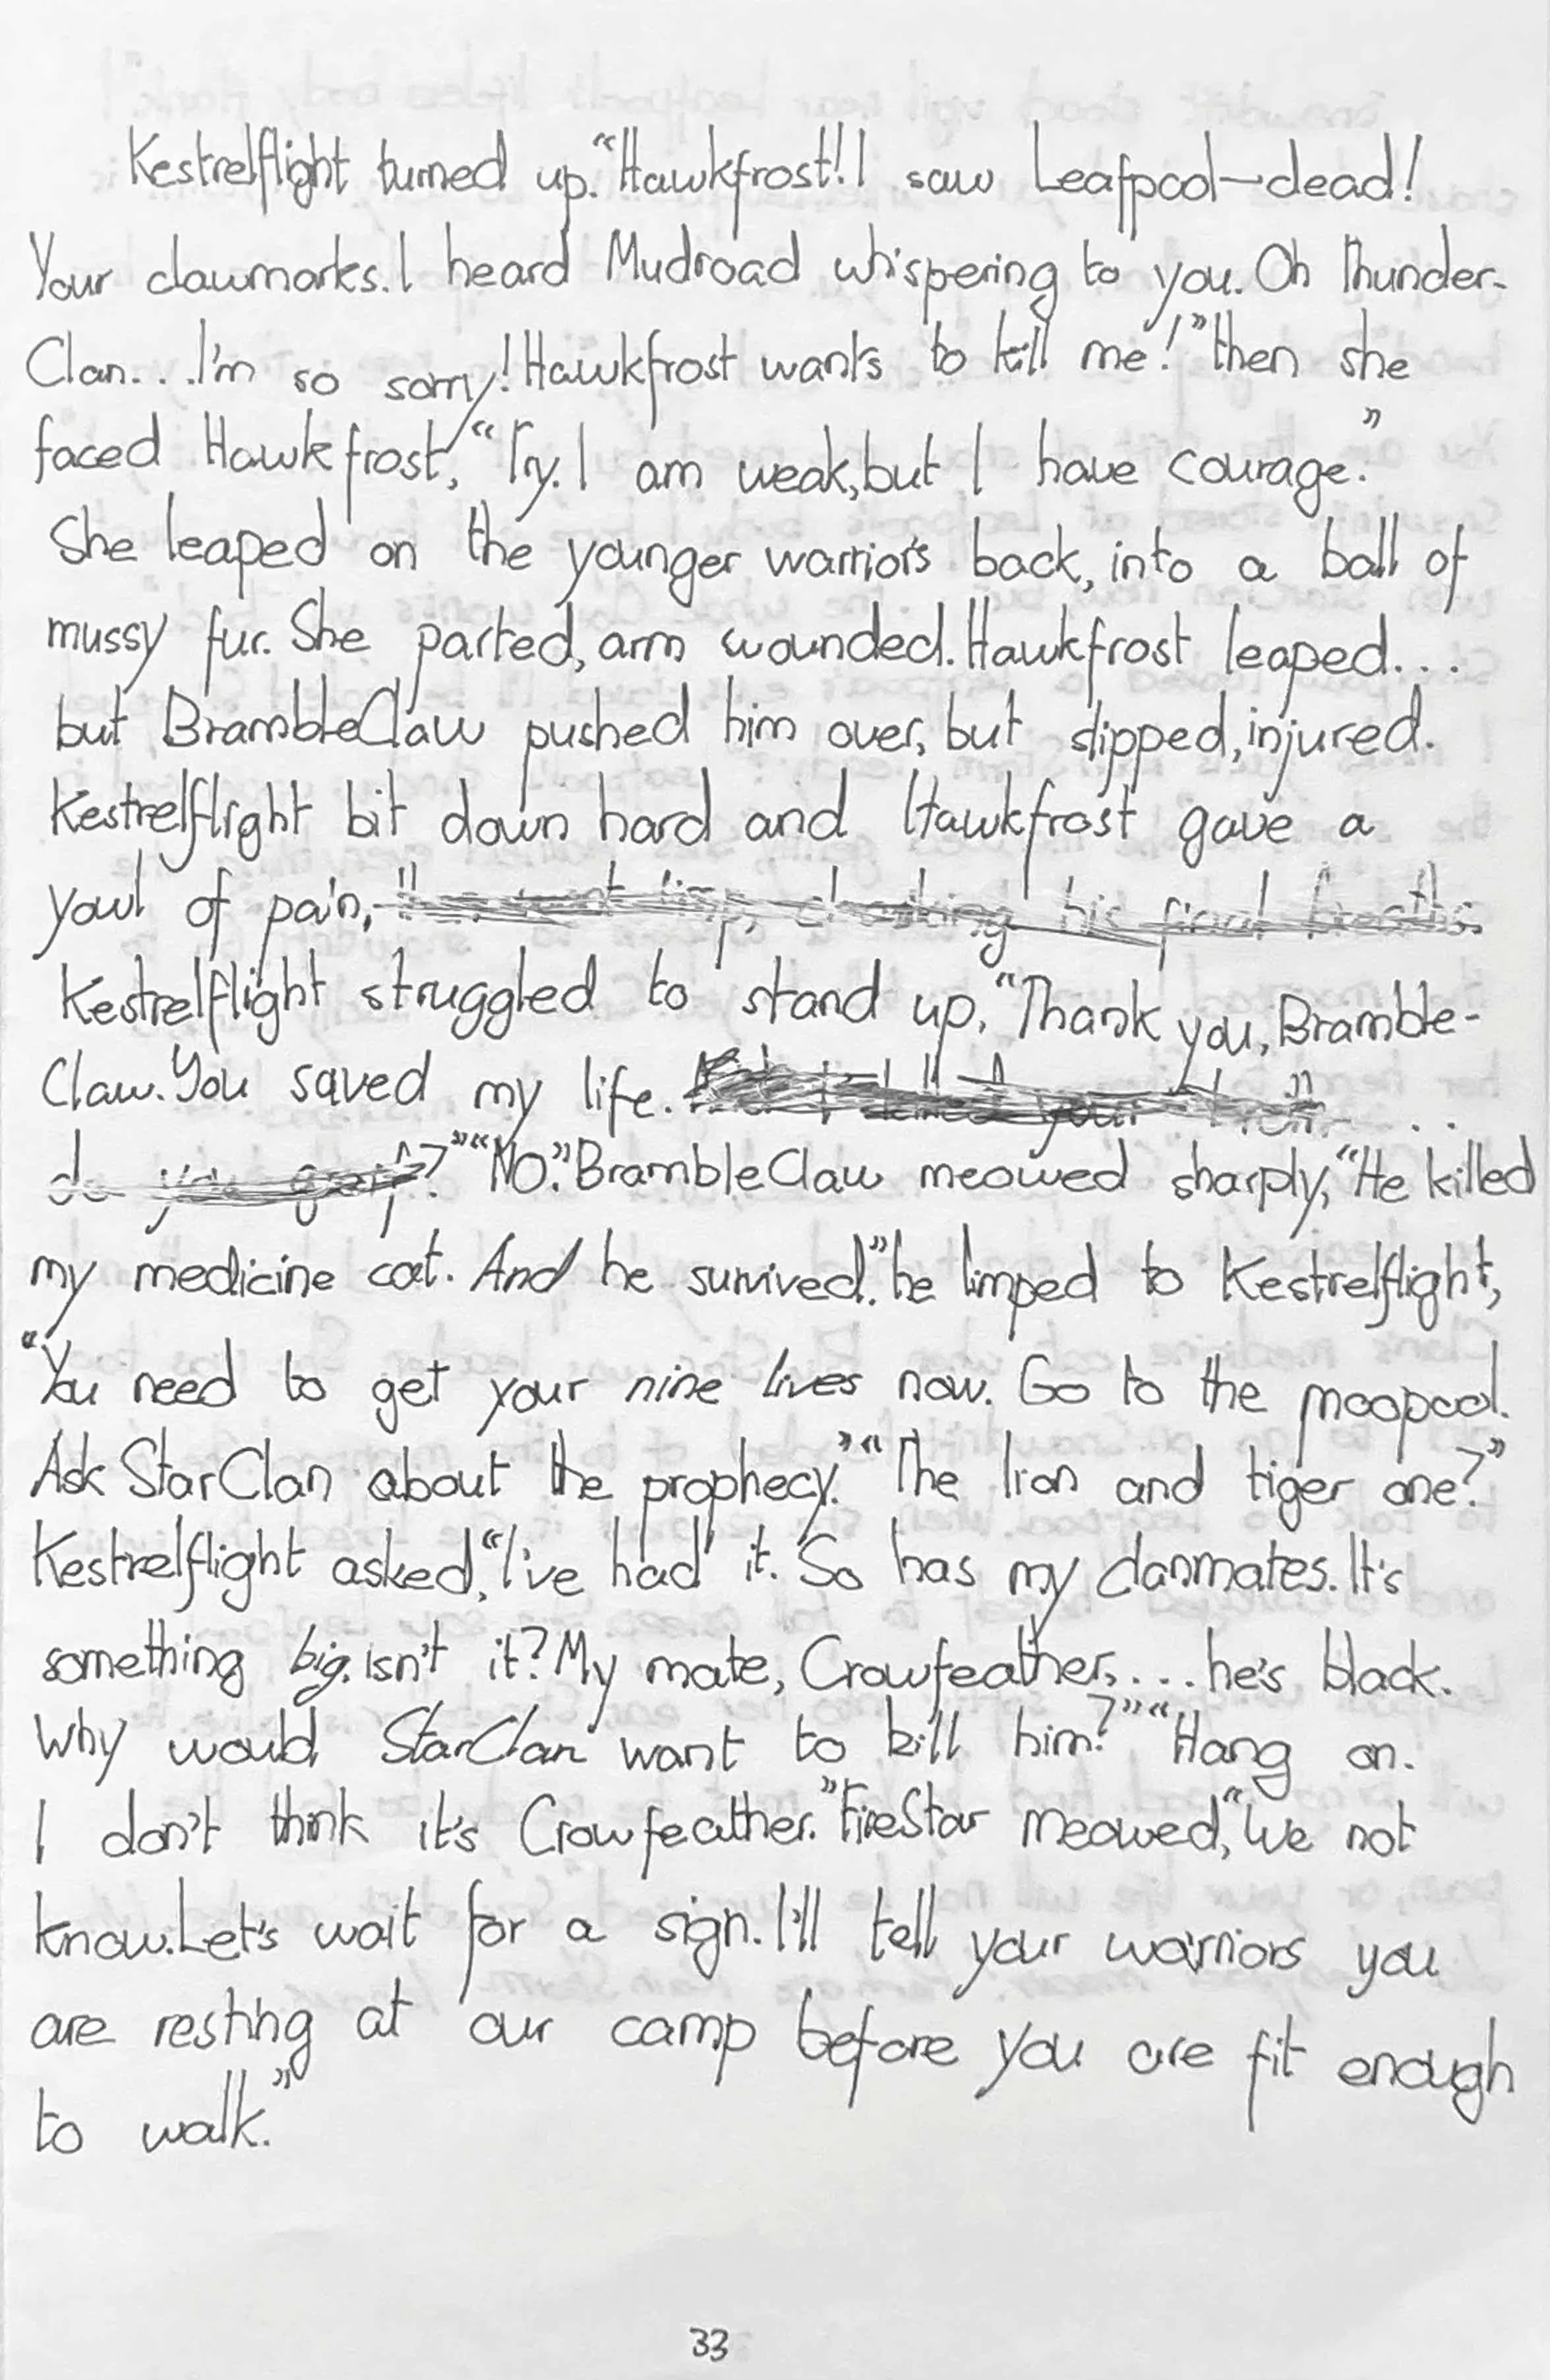 Kestrelflight turned up. "Hawkfrost! I saw Leafpool—dead!
Your clawmarks. I heard Mudroad whispering to you. Oh Thunder-
Clan... I'm so sorry! Hawkfrost wants to kill me!" then she
faced Hawkfrost, "Try. I am weak, but I have courage."
She leaped on the younger warrior's back, into a ball of
mussy fur. She parted, arm wounded. Hawkfrost leaped...
but BrambleClaw pushed him over, but slipped, injured.
Kestrelflight bit down hard and Hawkfrost gave a
yowl of pain, limp, choaking his final breaths.
Kestrelflight struggled to stand up, "Thank you, Bramble-
Claw. You saved my life. I killed your ...
do you ?" "NO." BrambleClaw meowed sharply, "He killed
my medicine cat. And he survived." he limped to Kestrelflight,
"You need to get your nine lives now. Go to the moopool.
Ask StarClan about the prophecy." "The lion and tiger one?"
Kestrelflight asked, "I've had it. So has my clanmates. It's
something big. isn't it? My mate, Crowfeather, ... he's black.
Why would StarClan want to kill him?" "Hang on.
I don't think it's Crowfeather." FireStar meowed, "We not
know. Let's wait for a sign. I'll tell your warriors you
are resting at our camp before you are fit enough
to walk."
33